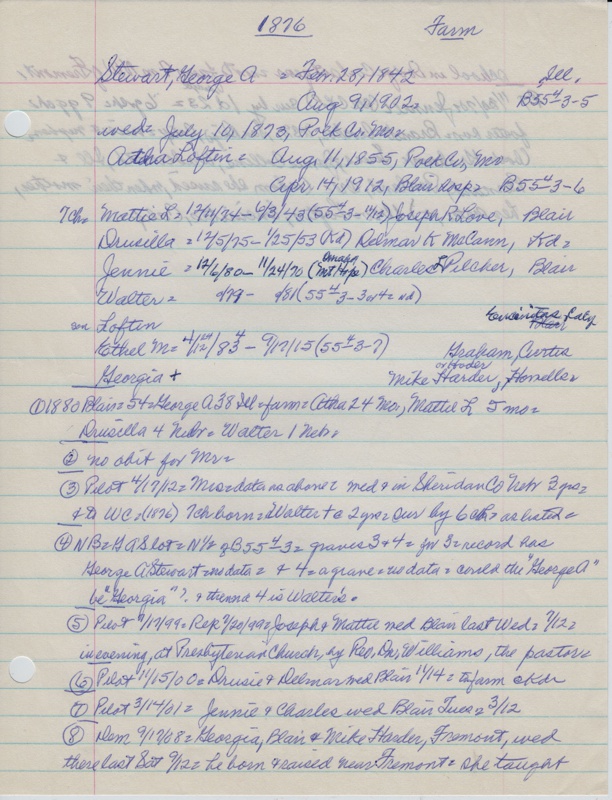 1876 Farm
Stewart, George A = Feb. 28, 1842 Ill.
Aug 9, 1902 = B55 4-3-5
wed = July 10, 1873, Polk Co, Mo =
Actha Loftin = Aug, 11, 1855, Polk Co, Mo
Apr, 14, 1912, Blair Hosp = B55 4-3-6
7Ch = Mattie L = - 6/3/43 (55 4-3-1½) Joseph R Love, Blair
Drusilla = 12/5/75 - 1/25/53 (Kd) Delmar K McCann, Kd =
Jennie = 12/6/80 - 11/24/70 (Omaha Mt Hope) Charles L Pilcher, Blair
Walter = d79 - d81 (55 4-3-3 or 4 = nd)
Loftin Encinitas, Caly
Ethel M = 83 - 9/17/15 (55 4-3-7) Graham, Curtis
Georgia + Mike Harder, Hornells =
① 1880 Blair = 54 = George A 38 Ill = farm = Actha 24 Mo, Mattie L 5 mo =
Drusilla 4 Nebr = Walter 1 Nebr =
② no obit for Mr =
③ Pilot 4/17/12 = Mrs = data as above & med & in Sheridan Co Nebr 3 yrs =
& to WC = (1876) 7 ch born = Walter + @ 2 yrs = sur by 6 ch = as listed =
④ NB = G A Slot = N½ of B55 4-3 = graves 3 & 4 = for 3 = record has
George A Stewart = no data = & 4 = a grave = no data = could the "George A"
be "Georgia"? & then 4 is Walter's =
⑤ Pilot 7/17/99 = Rep 7/20/99 = Joseph & Mattie wed Blair last Wed = 7/12 =
in evening, at Presbyterian Church, by Rev. Dr. Williams, the pastor =
⑥ Pilot 11/15/00 = Drusie & Delmar wed Blair 11/14 = to farm e Kdr
⑦ Pilot 3/14/01 = Jennie & Charles wed Blair Tues = 3/12
⑧ Dem 9/17/08 = Georgia, Blair & Mike Harder, Fremont, wed
there last Sat 9/12 = he born & raised near Fremont = she taught